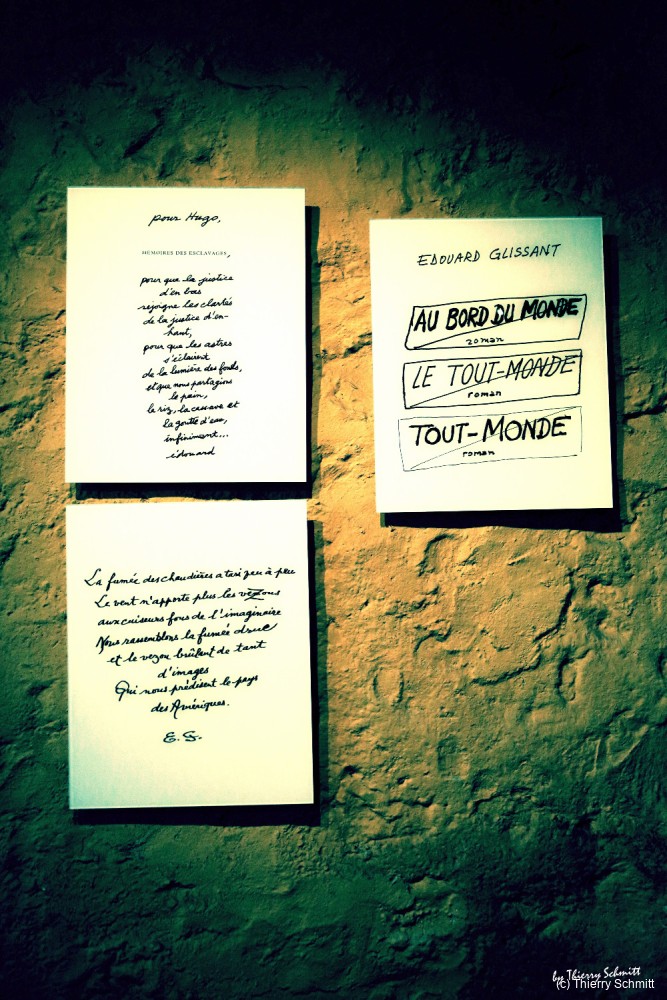 pour Hugo,
MÉMOIRES DES ESCLAVAGES,
pour que la justice
d'en bas
rejoigne les clartés
de la justice d'en-
haut,
pour que les astres
s'éclairent
de la lumière des fonds,
et que nous partagions
le pain,
le riz, la cassave et
la goutte d'eau,
infiniment...
édouard
EDOUARD GLISSANT
AU BORD DU MONDE
roman
LE TOUT-MONDE
roman
TOUT-MONDE
roman
La fumée des chaudières a tari peu à peu
Le vent n'apporte plus les vezous
aux cuiseurs fous de l'imaginaire
Nous rassemblons la fumée drue
et le vezou brûlant de tant
d'images
Qui nous prédisent le pays
des Amériques.
E. G.
by Thierry Schmitt
(c) Thierry Schmitt